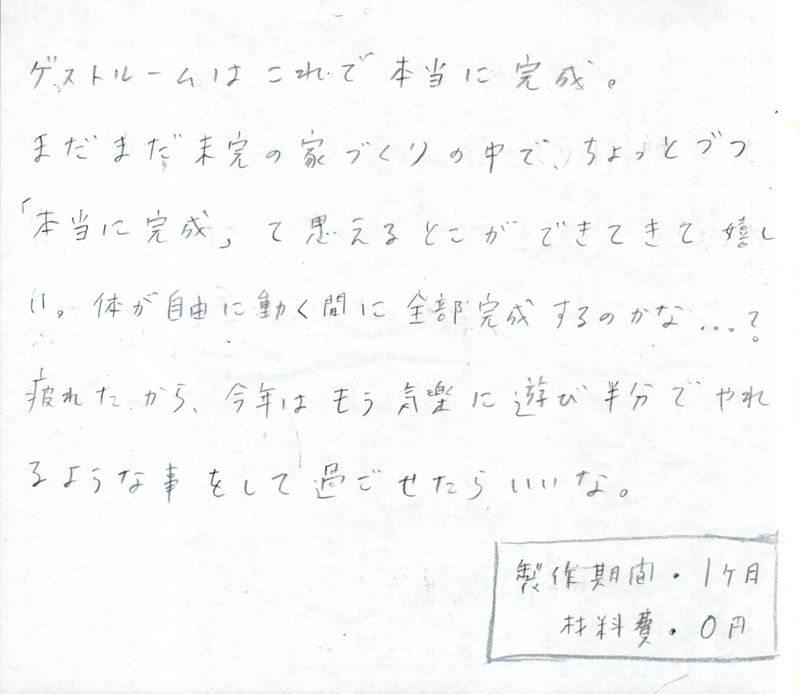 ゲストルームはこれで本当に完成。
まだまだ未完の家づくりの中で、ちょっとづつ
「本当に完成」て思えるとこができてきて嬉し
い。体が自由に動く間に全部完成するのかな…?
疲れたから、今年はもう気楽に遊び半分でやれ
るような事をして過ごせたらいいな。
製作期間・1ケ月
材料費・0円